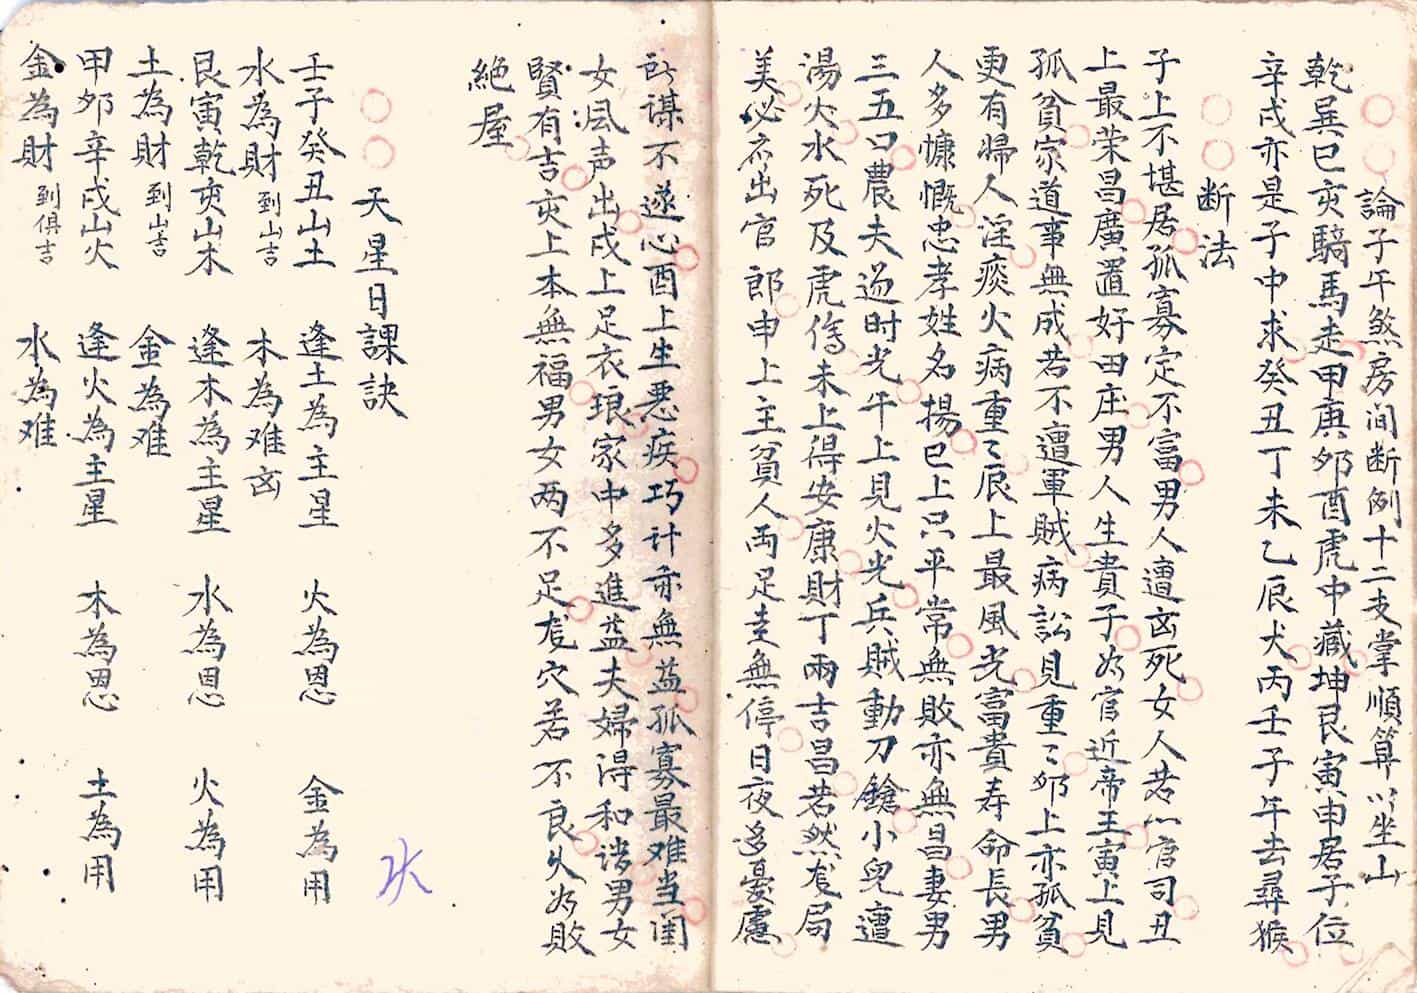 論子午煞房间断例十二支掌順算以坐山
乾巽巳亥騎馬走甲庚夘酉虎中藏坤艮寅申居子位
辛戌亦是子中求癸丑丁未乙辰犬丙壬子午去尋猴
断法
子上不堪居孤寡定不富男人遭凶死女人若心官司丑
上最荣昌廣置好田庄男人生貴子為官近帝王寅上見
孤貧家道事無成若不遭軍賊病訟見重〻夘上亦孤貧
更有婦人淫痰火病重〻辰上最風光富貴寿命長男
人多慷慨忠孝姓名揚巳上只平常無敗亦無昌妻男
三五口農夫過时光午上見火光兵賊動刀鎗小兒遭
湯火水死及虎傷未上得安康財丁兩吉昌若然局
美必亦出官郎申上主貧人両足走無停日夜多憂慮
所謀不遂心酉上生悪疾巧计亦無益孤寡最难当闺
女風声出戌上足衣琅家中多進益夫婦得和谐男女
賢有吉亥上本無福男女两不足穴若不良久為敗
絶屋
天星日課訣
壬子癸丑山土 逢土為主星 火為恩 金為用
水為財 到山吉 木為难凶
艮寅乾亥山木 逢木為主星 水為恩 火為用
土為財 到山吉 金為难
甲夘辛戌山火 逢火為主星 木為恩 土為用
金為財 到俱吉 水為难